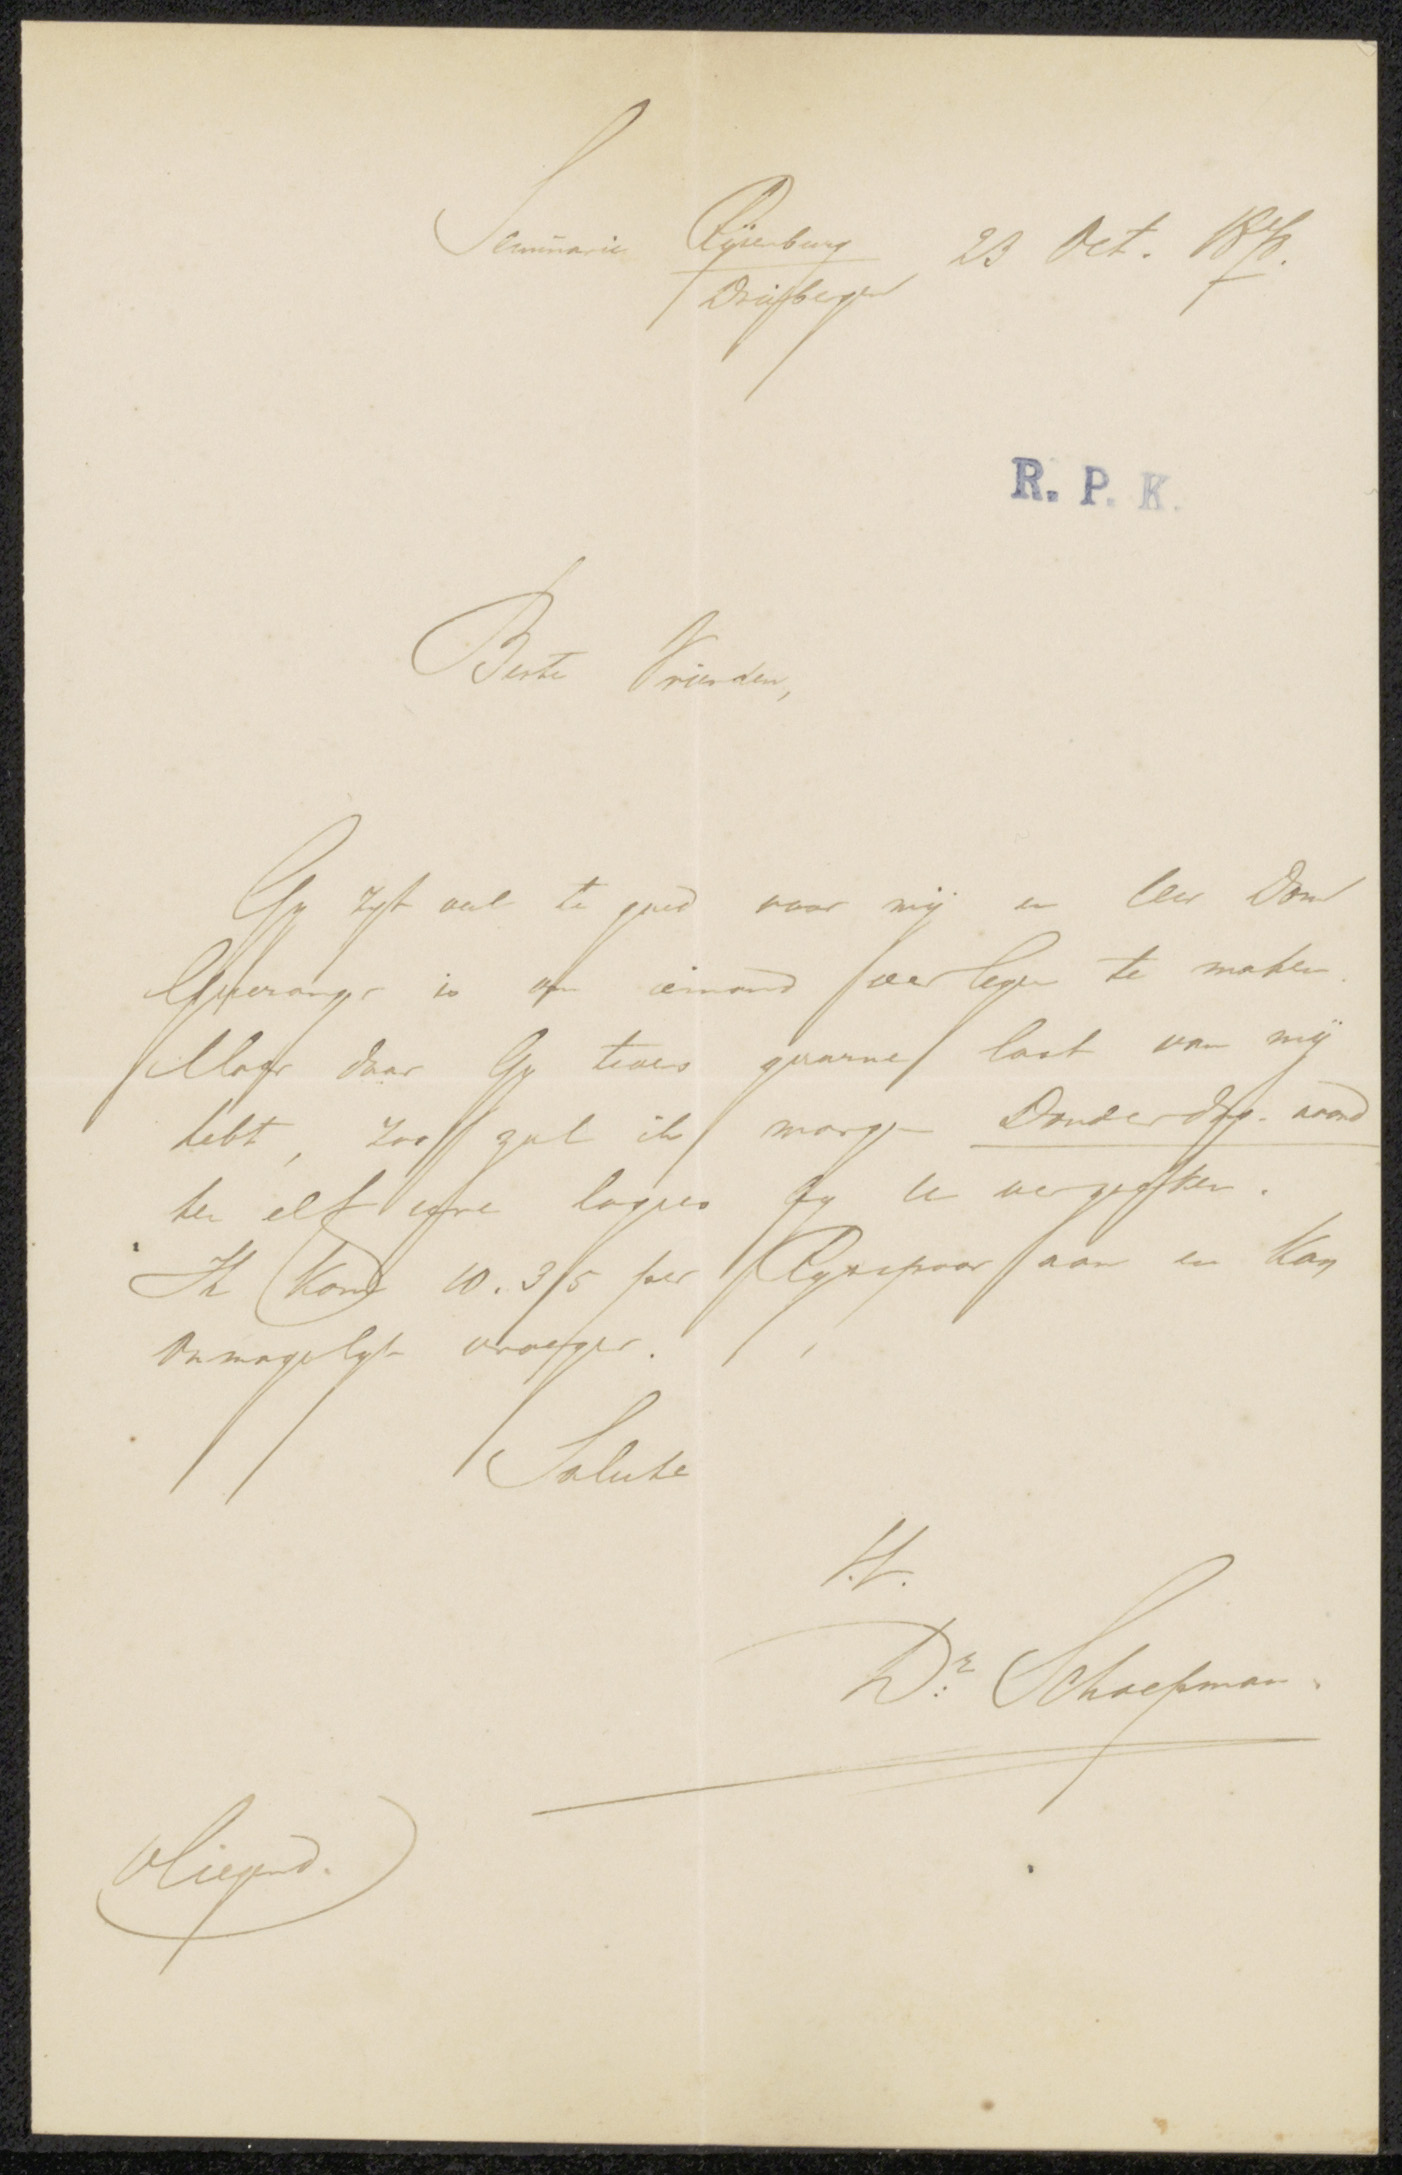 Seminarie Rijsenburg 23 Oct.
Driebergen
R. P. K.
Beste Vrienden,
Gy zyt veel te goed voor mij en Uw Dom
Gueranger is om iemand verlegen te maken.
Maar daar Gy tóch gaarne last van mij
hebt, zoo zal ik morgen Donderdag-avond
ten elf ure logies by U verzoeken.
Ik kom 10.35 per Rynspoor aan en kan
onmogelyk vroeger.
Salute
t.t.
Dr. Schaepman.
Vliegend.